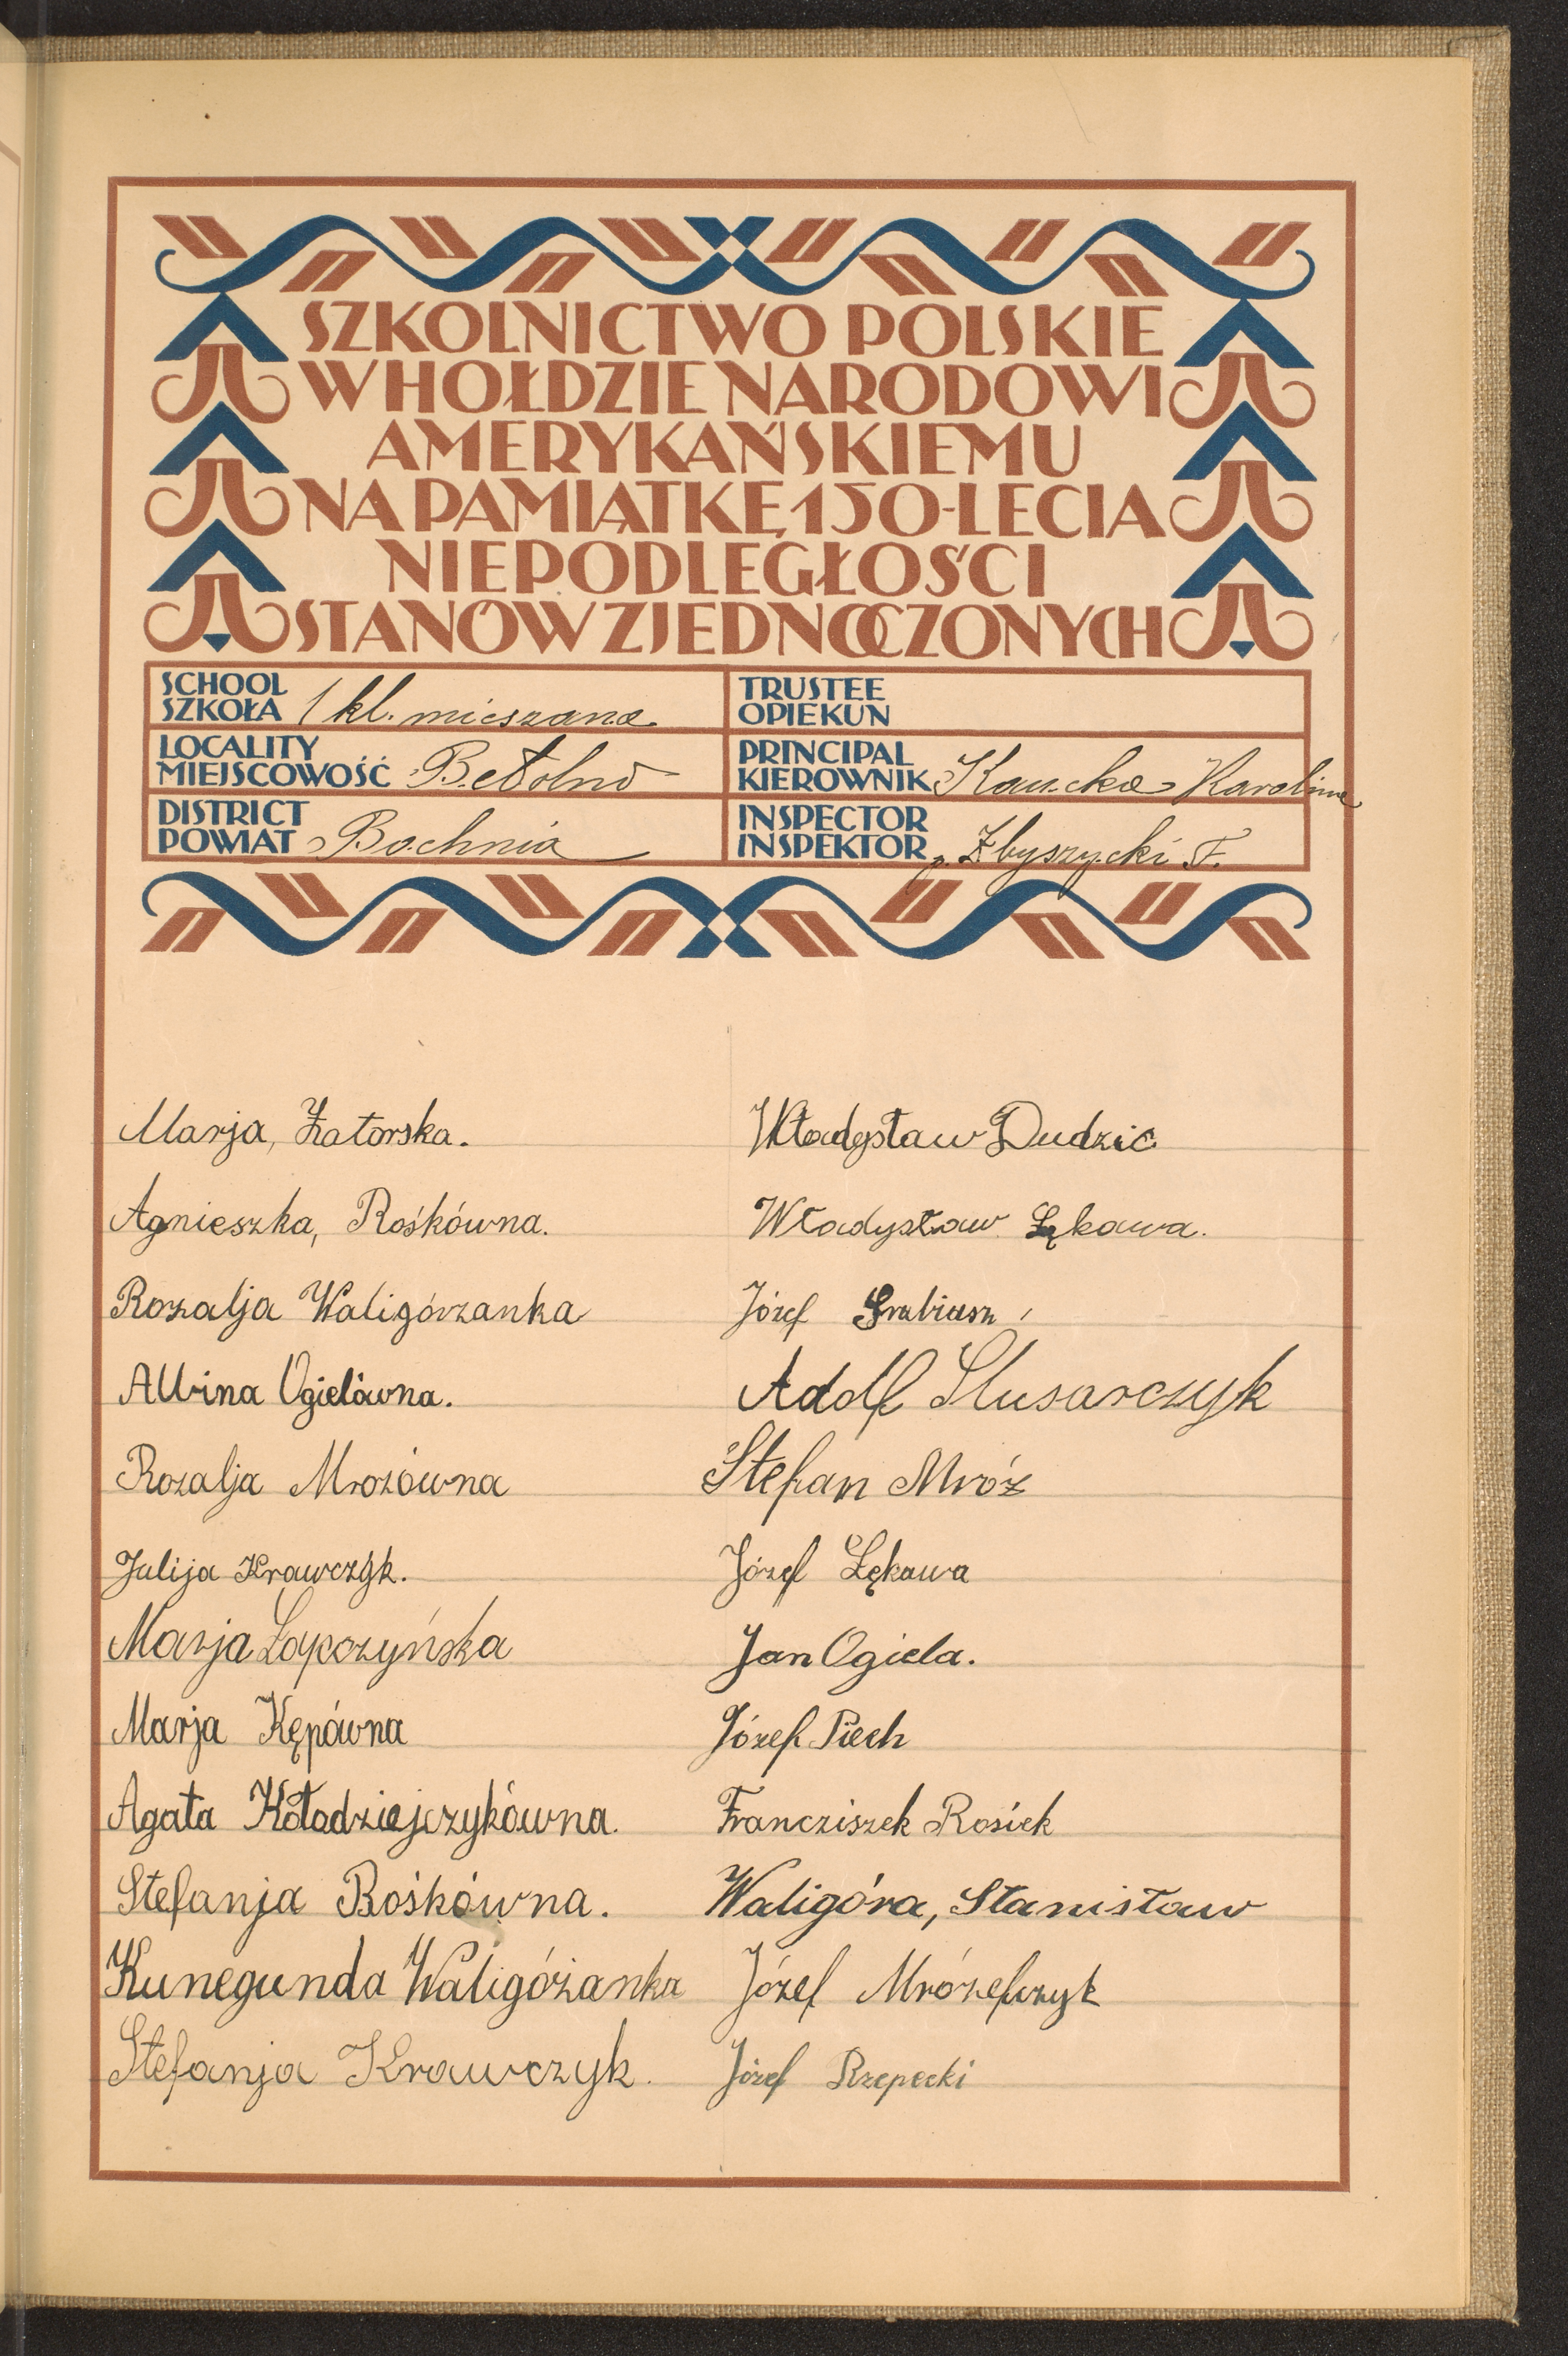 SZKOLNICTWO POLSKIE
W HOŁDZIE NARODOWI
AMERYKAŃSKIEMU
NA PAMIĄTKĘ 150-LECIA
NIEPODLEGŁOŚCI
STANÓW ZJEDNOCZONYCH
SCHOOL
SZKOŁA 1 kl. mieszana
TRUSTEE
OPIEKUN
LOCALITY
MIEJSCOWOŚĆ Bełdno
PRINCIPAL
KIEROWNIK Kaucka Karolina
DISTRICT
POWIAT Bochnia
INSPECTOR
INSPEKTOR p. Zbyszycki F.
Marja, Zatorska.
Agnieszka, Rośkówna.
Rozalja Waligórzanka
Albina Ogielówna.
Rozalja Mrozówna
Julija Krawczyk.
Marja Łapczyńska
Marja Kępówna
Agata Kołodziejczykówna.
Stefanja Rośkówna.
Kunegunda Waligóżanka
Stefanja Krawczyk.
Władysław Dudzic
Władysław Łękawa.
Józef Grabiasz
Adolf Slusarczyk
Stefan Mróz
Józef Łękawa
Jan Ogiela.
Józef Piech
Francziszek Rosiek
Waligóra, Stanisław
Józef Mrózefczyk
Józef Rzepecki